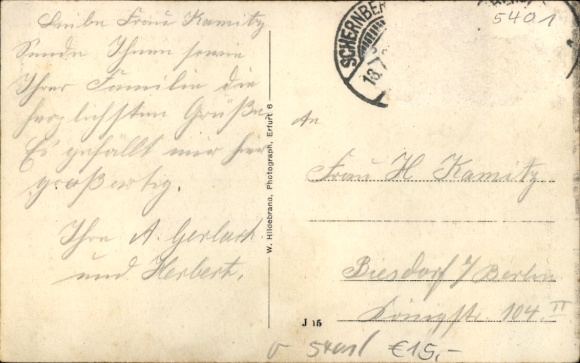 Liebe Frau Kamitz
Sende Ihnen sowie
Ihrer Familie die
herzlichsten Grüße.
Es gefällt mir hier
großartig.
Ihre A. Gerlach
und Herbert.
W. Hildebrand, Photograph, Erfurt 6
SCHERNBER
18.7
5401
An
Frau H Kamitz
Biesdorf / Berlin
Königstr. 104 II
J 15
€15,-